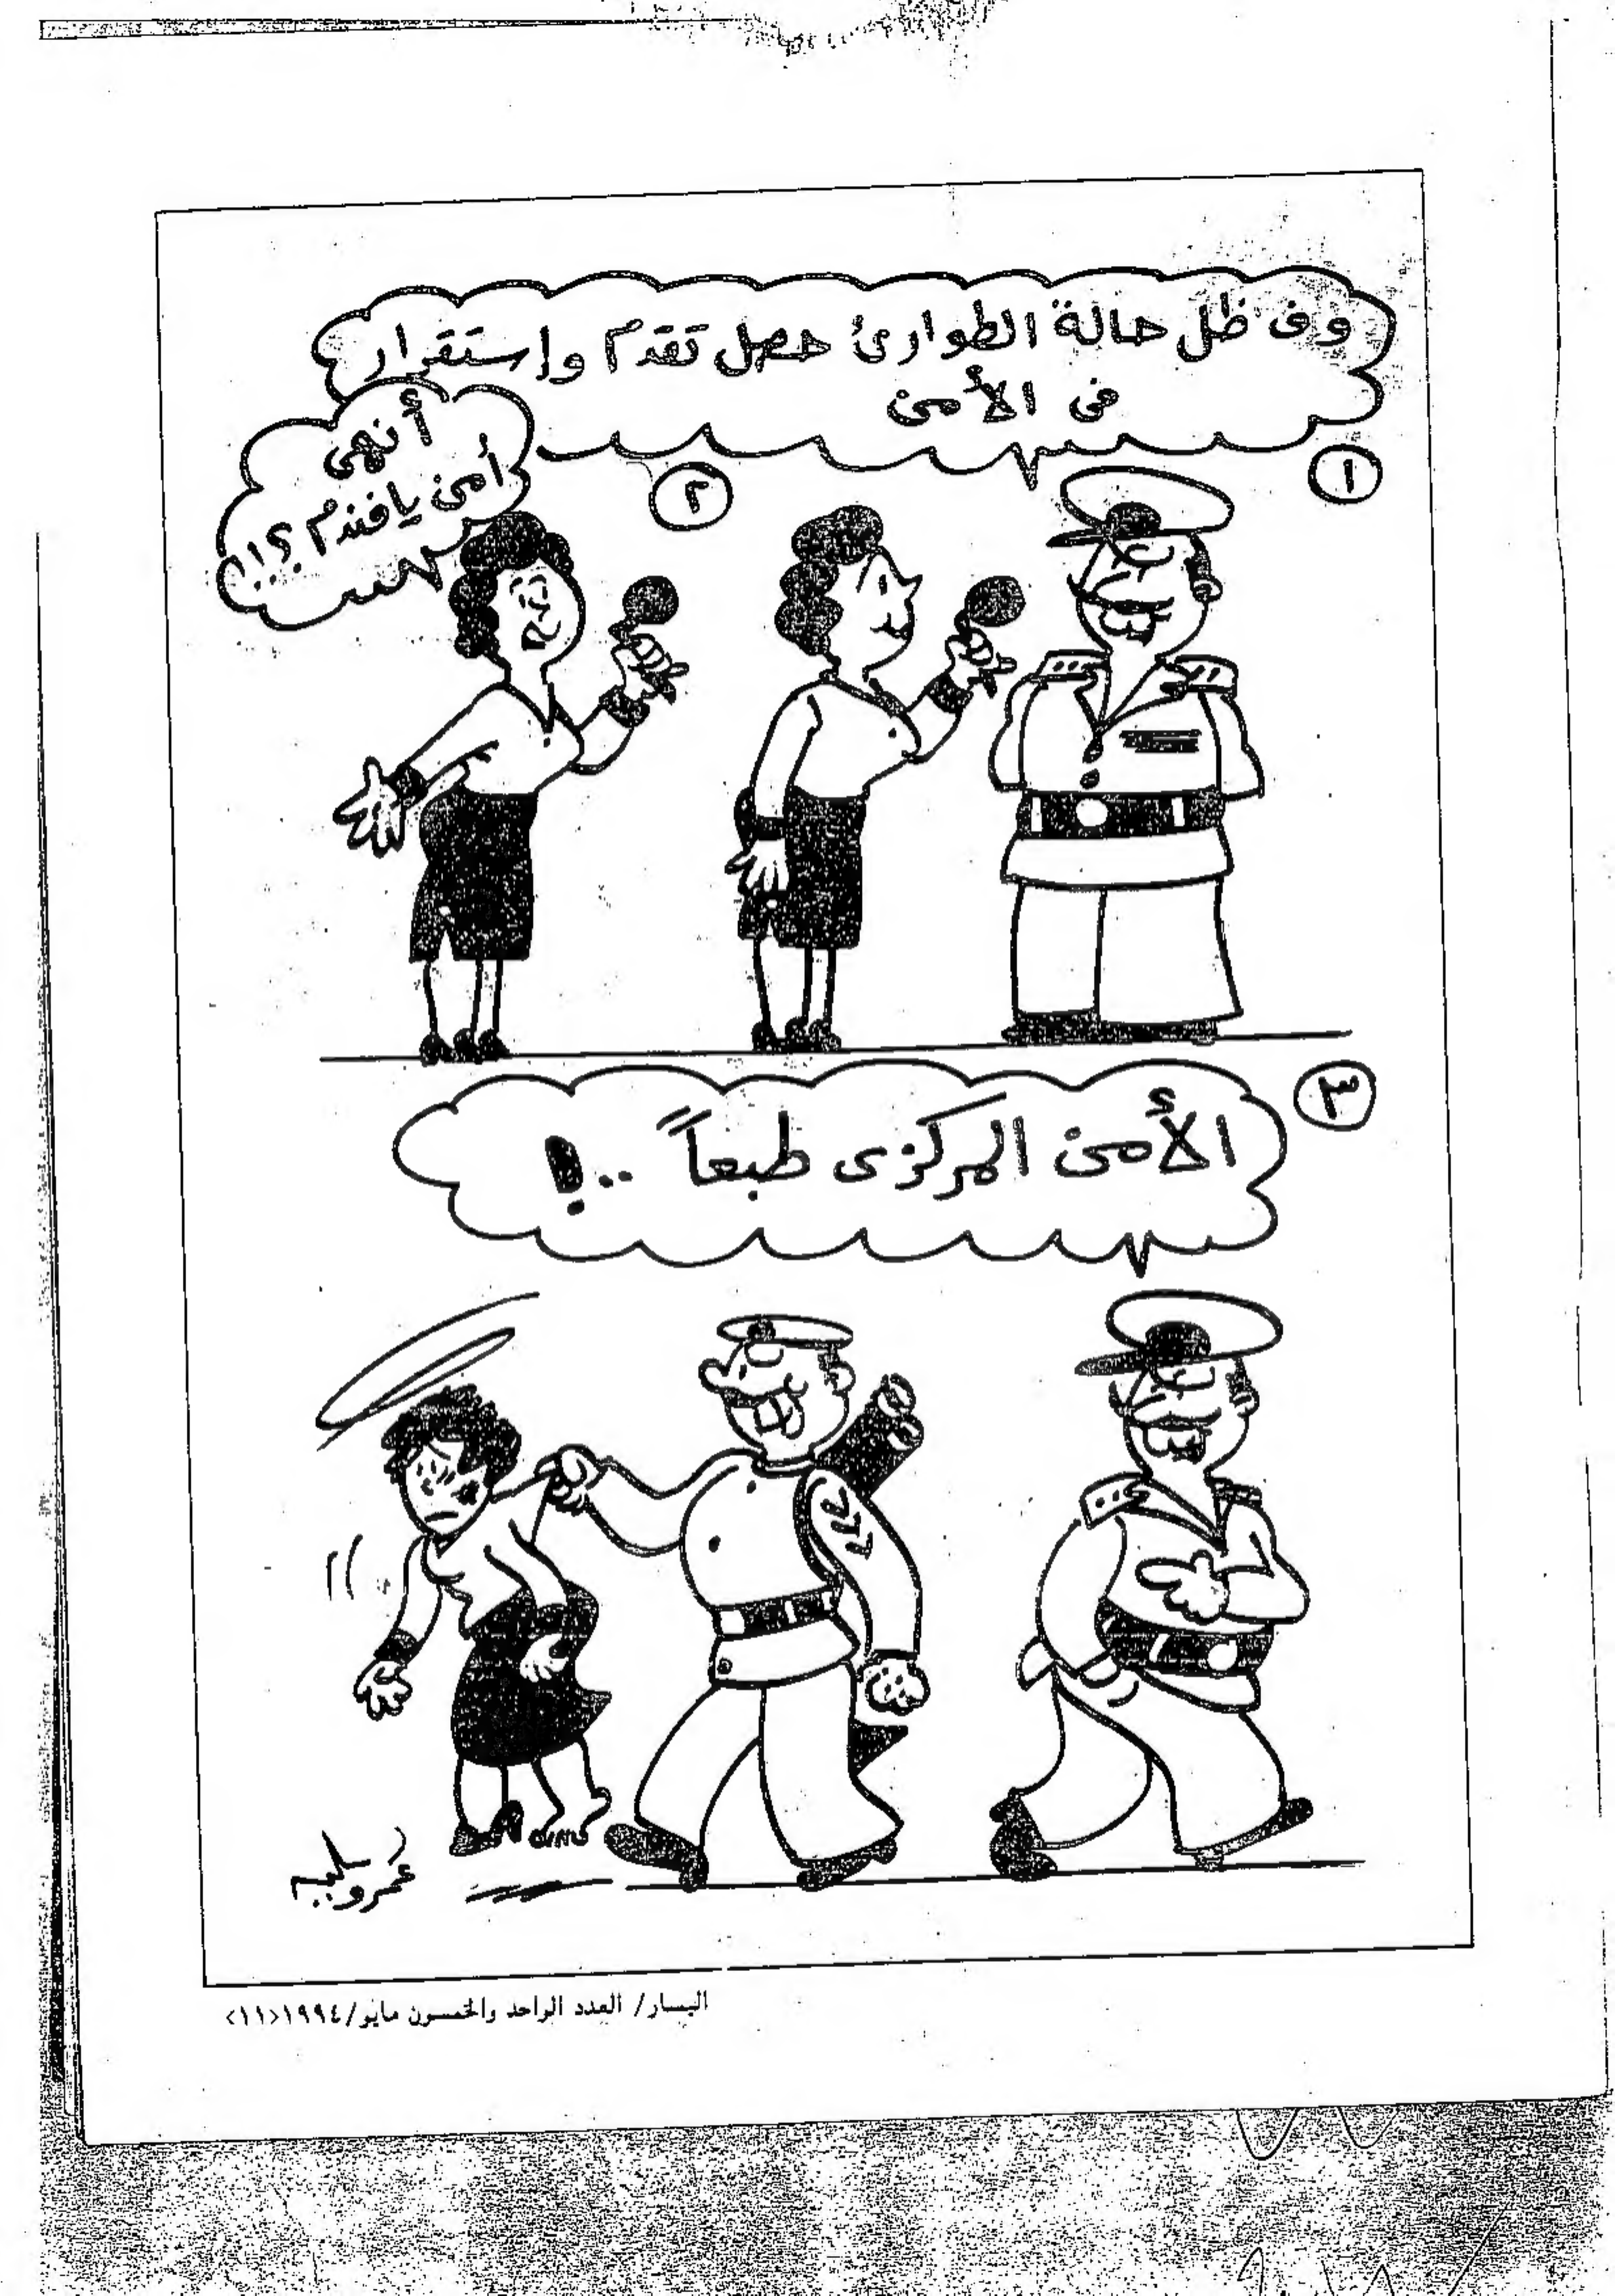 وف ظل حالة الطوارئ حصل تقدم وإستقرار
فى الأمن
١
أنهى
أمن يا فندم ؟!!
٢
٣
الأمن المركزى طبعاً ..!
عمرو سليم
اليسار/ العدد الواحد والخمسون مايو/١٩٩٤<١١>